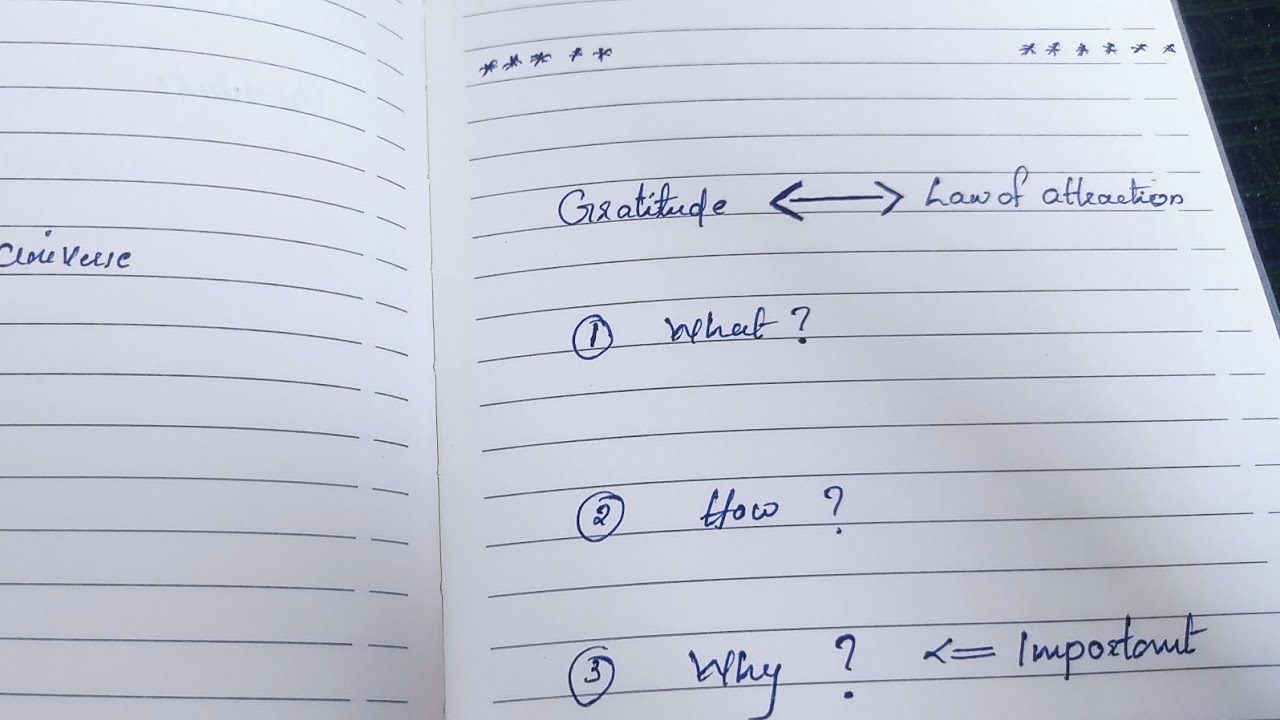 universe
***** ******
Gratitude <—> Law of attraction
① What ?
② How ?
③ Why ? <= Important